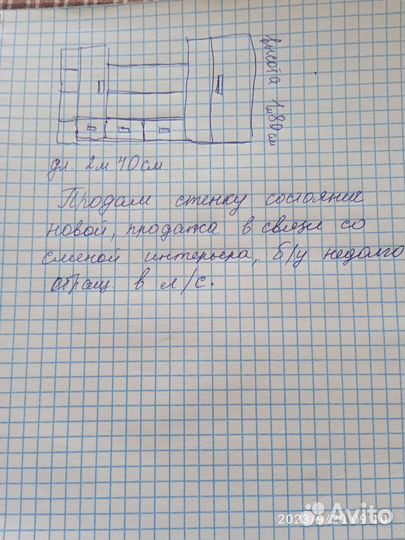 высота 1м80см
дл. 2м 40см
Продам стенку состояние
новой, продажа в связи со
сменой интерьера, б/у недолго
обращ в л/с.
Avito